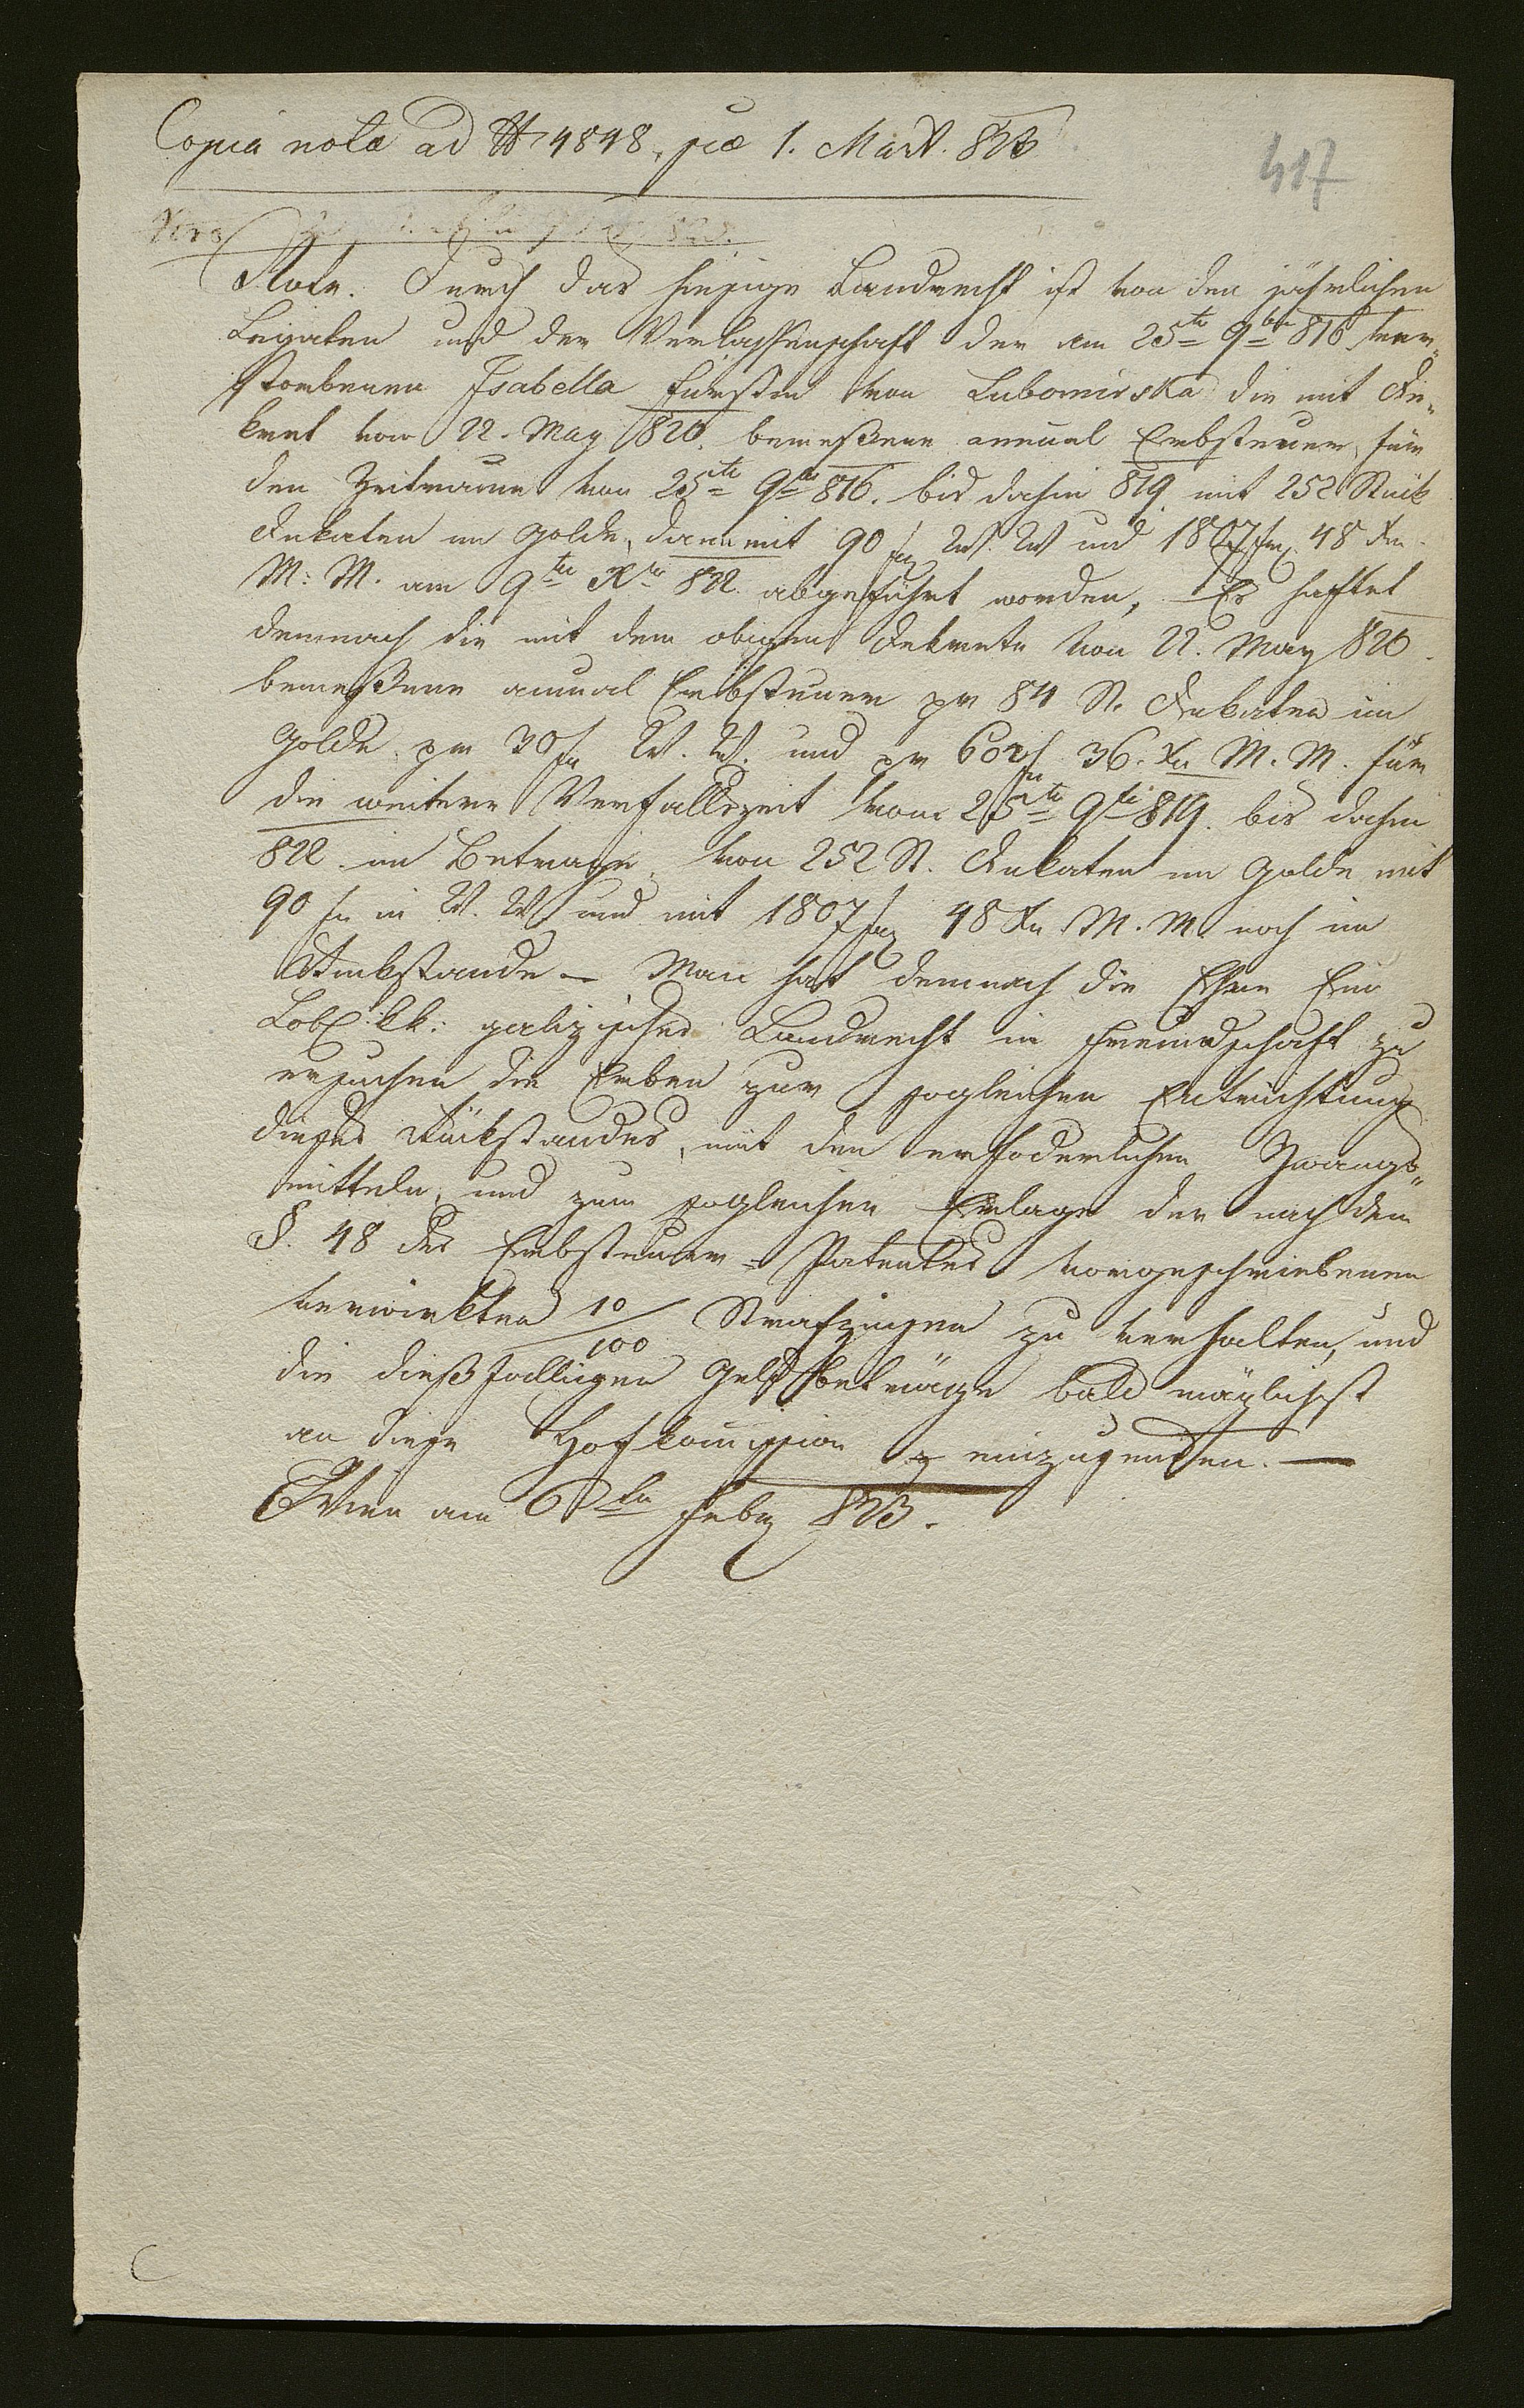 Copia nota ad # 4848, pce 1. Mart. 823
417
Note. Durch das hiesige Landrecht ist von den jährlichen
Legaten und der Verlassenschaft der am 25ten 9ber 816 ver„
storbenen Isabella Fürstin von Lubomirska die mit De„
kret vom 22. May 820. bemeßene annual Erbsteuer, für
den Zeitraum von 25ten 9ber 816. bis dahin 819. mit 252 Stück
Dukaten in Golde, dann mit 90 fr W. W und 1807 fr. 48 Xr.
M. M. am 9ten Xber 822. abgeführt worden, – Es haftet
demnach die mit dem obigen Dekrete von 22. May 820.
bemeßene annual Erbsteuer pr 84 St. Dukaten in
Golde pr 30 fr W. W. und pr 602 fr 36. Xr M. M. für
die weitere Verfallszeit vom 25ten 9ber 819. bis dahin
822. im Betrage von 252 St. Dukaten in Golde mit
90 fr in W. W und mit 1807 fr 48 Xr M. M. noch im
Rückstande – Man hat demnach die Ehre Ein
Löbl: kk: galizisches Landrecht in Freundschaft zu
ersuchen die Erben zur sogleichen Entrichtung
dieses Rückstandes, mit den erforderlichen Zwangs„
mitteln, und zum sogleichen Erlage der nach dem
§. 48 des Erbsteuer = Patentes vorgeschriebenen
verwirkten 10/100 Strafzinsen zu verhalten, und
die dießfälligen Geldbeträge bald möglichst
an diese Hofkommission einzusenden. —
Wien am 6ten Feber 823.